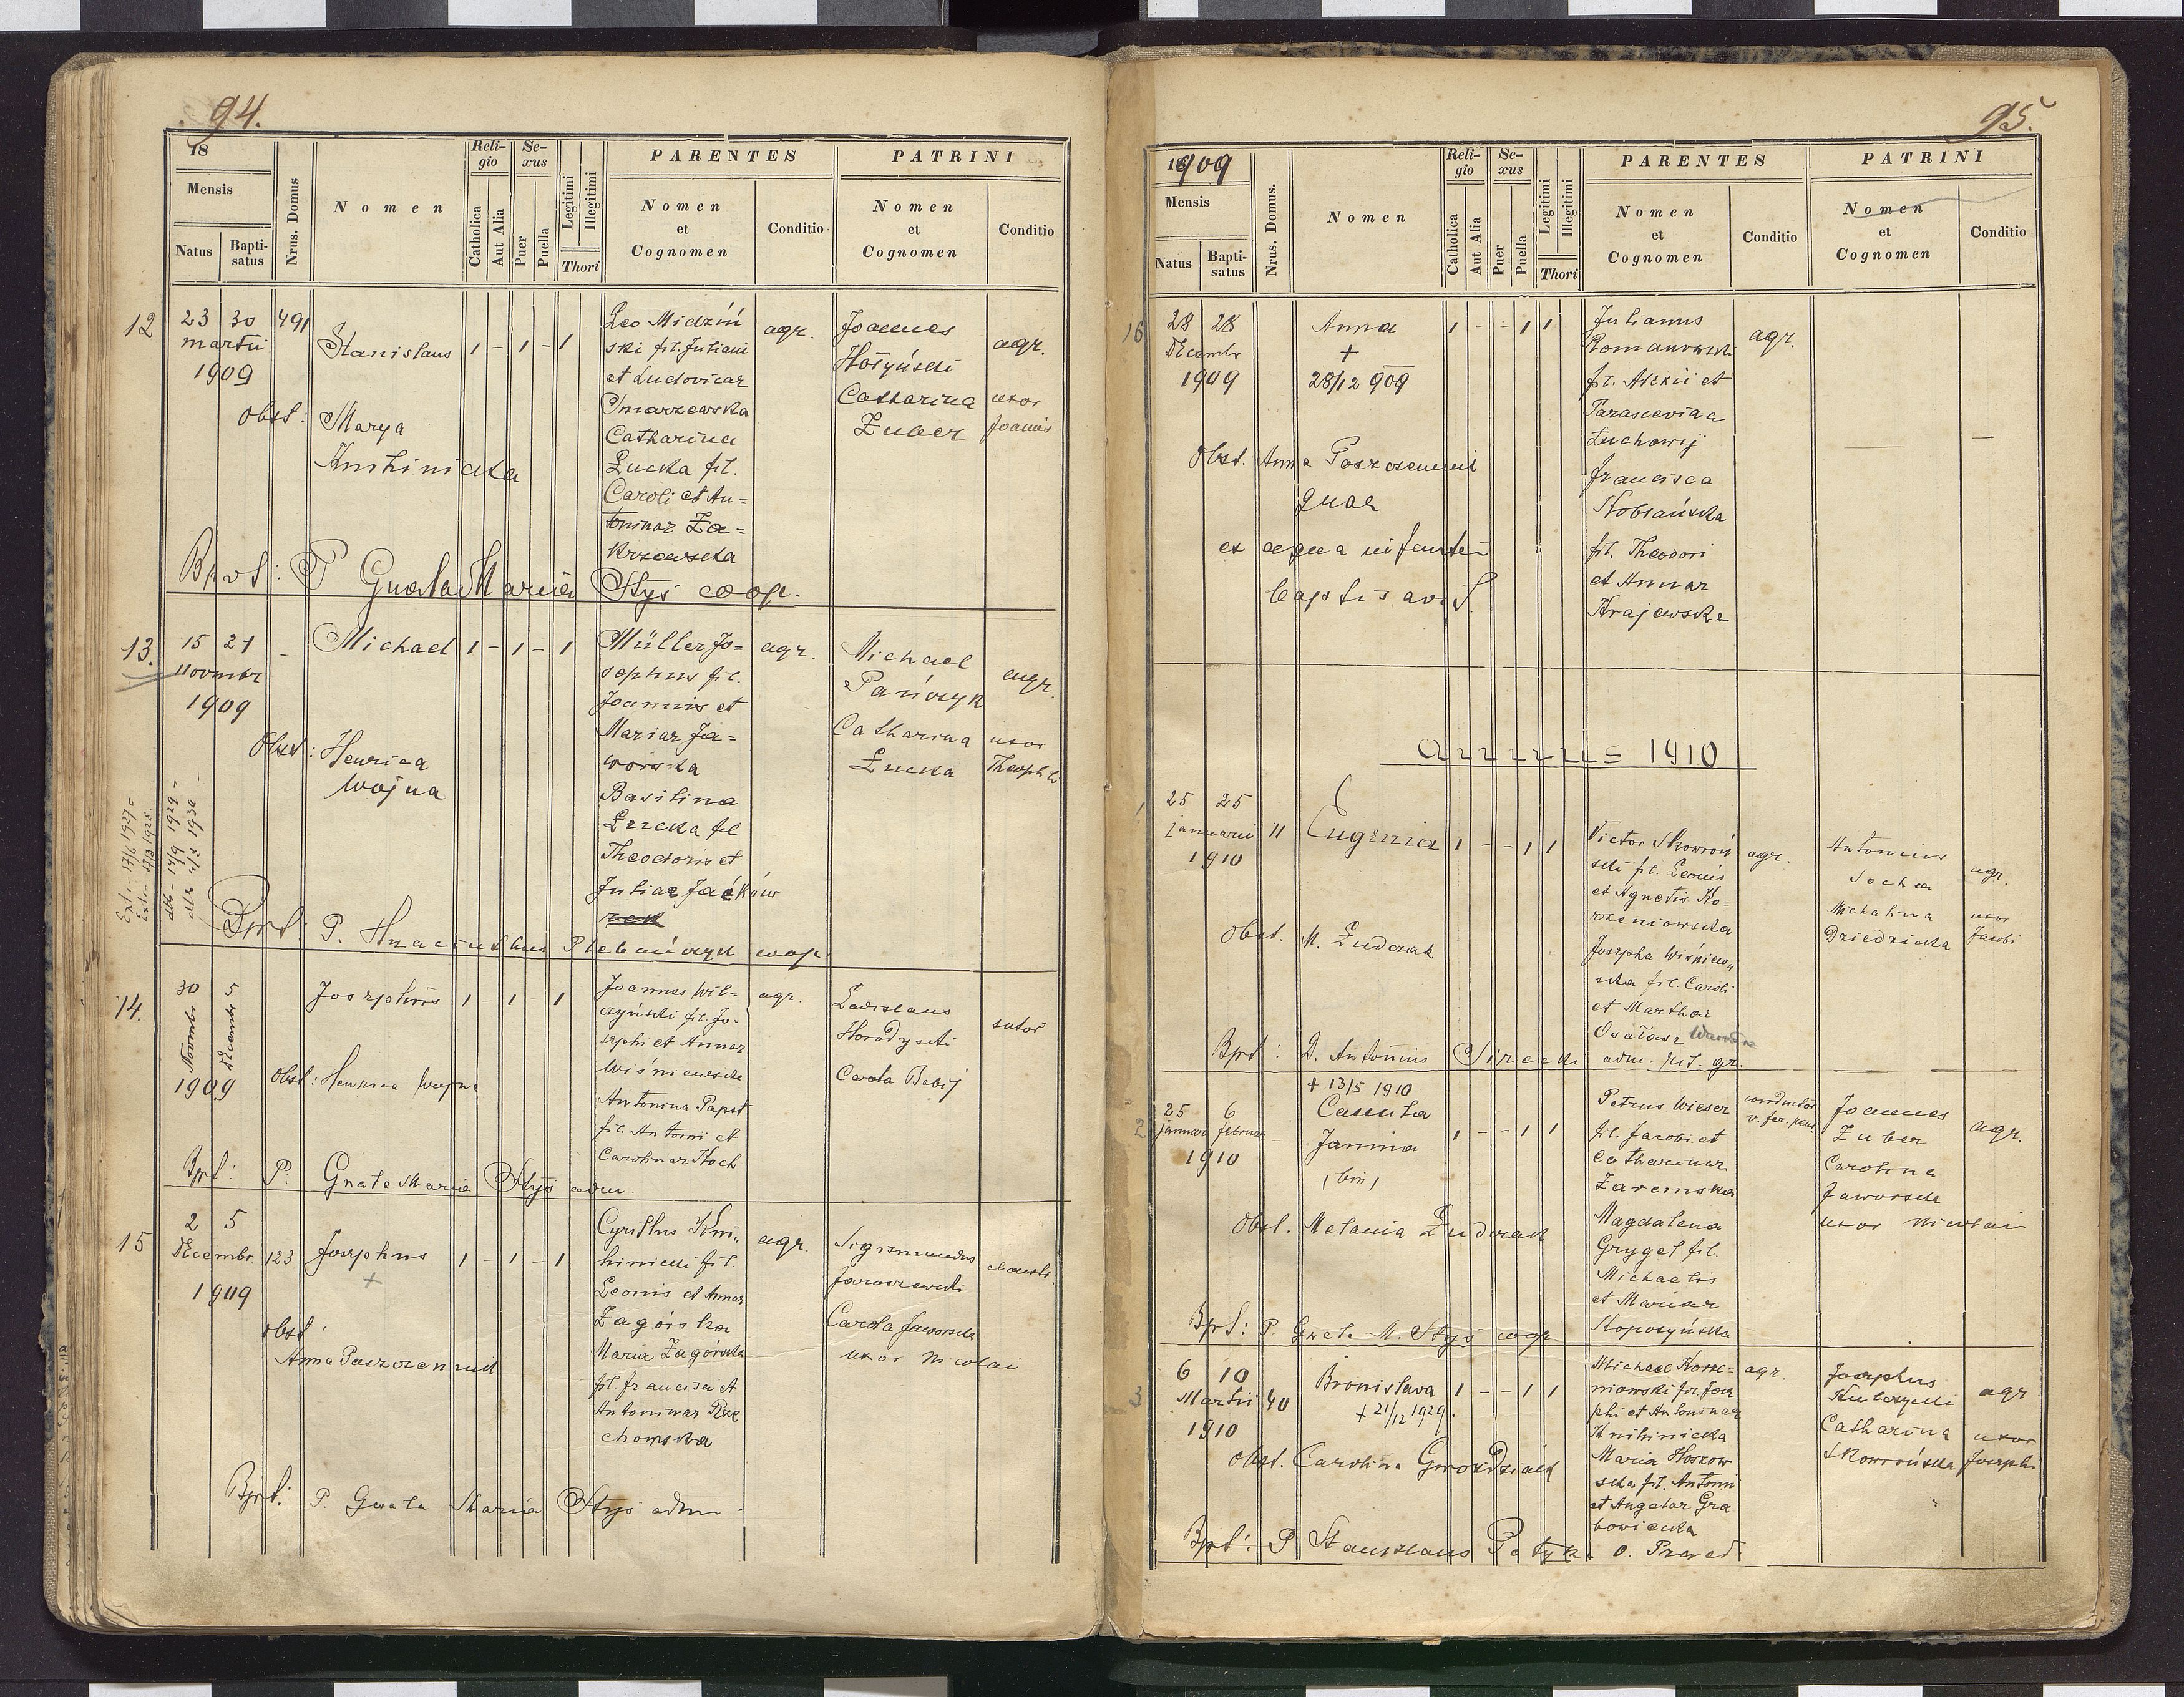 94.
18
Mensis
Natus
Bapti-
satus
Nrus. Domus
Nomen
Reli-
gio
Catholica
Aut Alia
Se-
xus
Puer
Puella
Legitimi
Illegitimi
Thori
PARENTES
Nomen
et
Cognomen
Conditio
PATRINI
Nomen
et
Cognomen
Conditio
12
23 30 491
martii
1909
Stanislaus
1 - 1 - 1
Leo Midziń
ski fil. Juliani
et Ludovicae
Smarzewska
Catharina
Łucka fil.
Caroli et An=
toninae Za=
krzewska
agr.
Joannes
Catharina
Zuber
agr.
uxor
Joannis
Obst:
Marya
Knihinicka
Bpt: P Gnata Maria Styś coop.
13.
15 21 -
Novmbr
1909
Michael
1 - 1 - 1
Müller Jo=
sephus fil.
Joannis et
Mariae Ja=
worska
Basilina
Łucka fil
Theodoris et
Juliae Jaćków
agr.
Michael
Pańczyk
Catharina
Łucka
agr.
uxor
Theophili
Obst:
Henrica
Wojna
Ext. 17/6 1927 =
Ext. 17/3 1928.
dto 17/9 1929 -
dto 4/3 1930 -
Bpt: P. Hyacinthus Plebańczyk coop.
14.
30 5
Novmbr Decembr
1909
Josephus
1 - 1 - 1
Joannes Wil-
czyński fil. Jo-
sephi et Annae
Wiśniewska
Antonina Papst
fil. Antonii et
Carolinae Koch
agr.
Ladislaus
Horodyski
Carola Babij
sutor
Obst: Henrica Wojna
Bpt: P. Gnata Maria Styś adm.
15
2 5
Decembr. 123
1909
Josephus
+
1 - 1 - 1
Cyrillus Kni„
hinicki fil.
Leonis et Annae
Zagórska
Maria Zagórska
fil. Francisci et
Antoninae Rze
chowska
agr.
Sigismundus
Jaroszewski
Carola Jaworska
uxor Nicolai
Obst:
Anna Paszczenniuk
Bpt: P. Gnata Maria Styś adm.
95.
1909
Mensis
Natus
Bapti-
satus
Nrus. Domus.
Nomen
Reli-
gio
Catholica
Aut Alia
Se-
xus
Puer
Puella
Legitimi
Illegitimi
Thori
PARENTES
Nomen
et
Cognomen
Conditio
PATRINI
Nomen
et
Cognomen
Conditio
16
28 28
Decembr
1909
Anna
+
28/12 909
1 - - 1 1
Julianus
Romanowski
fil. Alexii et
Parasceviae
Łuchowij
Francisca
Kobłańska
fil. Theodori
et Annae
Krajewska
agr.
Obst. Anna
quae
ex aqua infantem
baptisavit.
Annus 1910
1
25 25
januarii 11
1910
Eugenia
1 - - 1 1
Victor Skowroń
ski fil. Leonis
et Agnetis Ko-
rzeniowska
Josepha Wiśniew„
ska fil. Caroli
et Marthae
agr.
Antonius
Socha
Michalina
Dziedzicka
agr.
uxor
Jacobi
Obst. M. Łudczak
Bpt: D. Antonius Sirecki adm. rit. gr.
2
25 6
januar februar
1910
+ 13/5 1910
Camila
Janina
(bin)
1 - - 1 1
Petrus Wieser
fil. Jacobi et
Catharinae
Zaremska
Magdalena
Grygel fil.
Michaelis
et Mariae
Koposzyńska
conductor
Joannes
Zuber
Carolina
Jaworska
uxor Nicolai
agr.
Obst. Melania Łudczak
Bpt: P. Gnata M. Styś coop.
3
6 10
Martii 40
1910
Bronislava
+ 21/12 1929.
1 - - 1 1
Michael Korze=
niowski fil. Jose
phi et Antoninae
Knihinicka
Maria Hoszow
ska fil. Antonii
et Angelae Gra
bowiecka
agr.
Josephus
Kulczycki
Catharina
Skowrońska
agr
uxor
Josephi
Obst. Carolina Gwoździak
Bpt: P Stanislaus Patyk